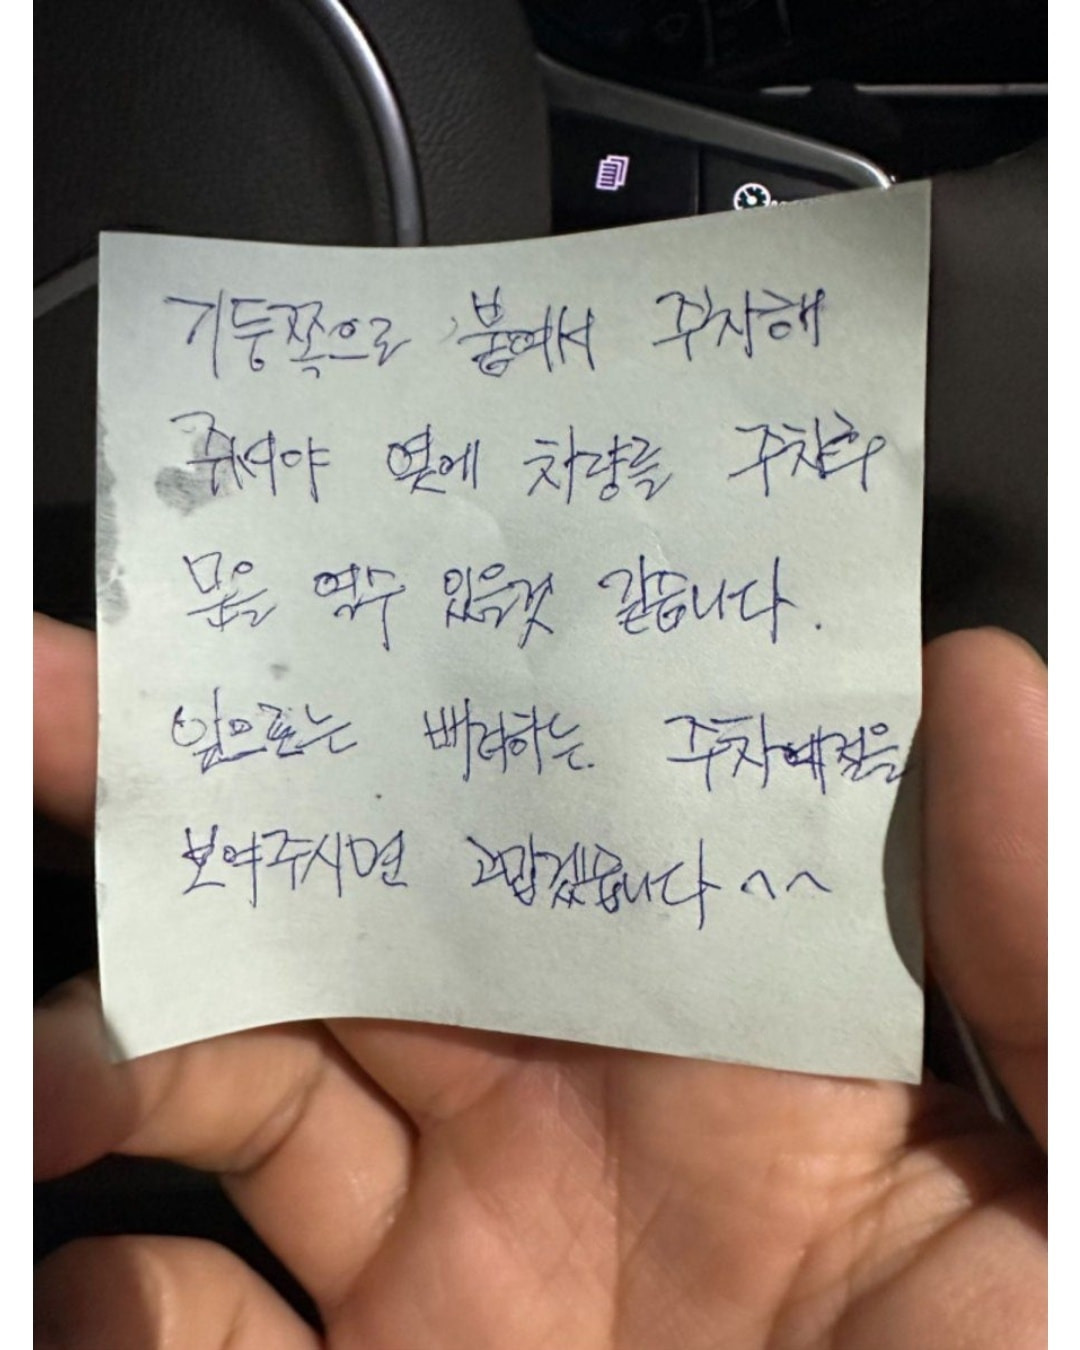 기둥쪽으로 붙여서 주차해
주셔야 옆에 차량을 주차후
문을 열수 있을것 같습니다.
앞으로는 배려하는 주차예절을
보여주시면 고맙겠습니다 ^^